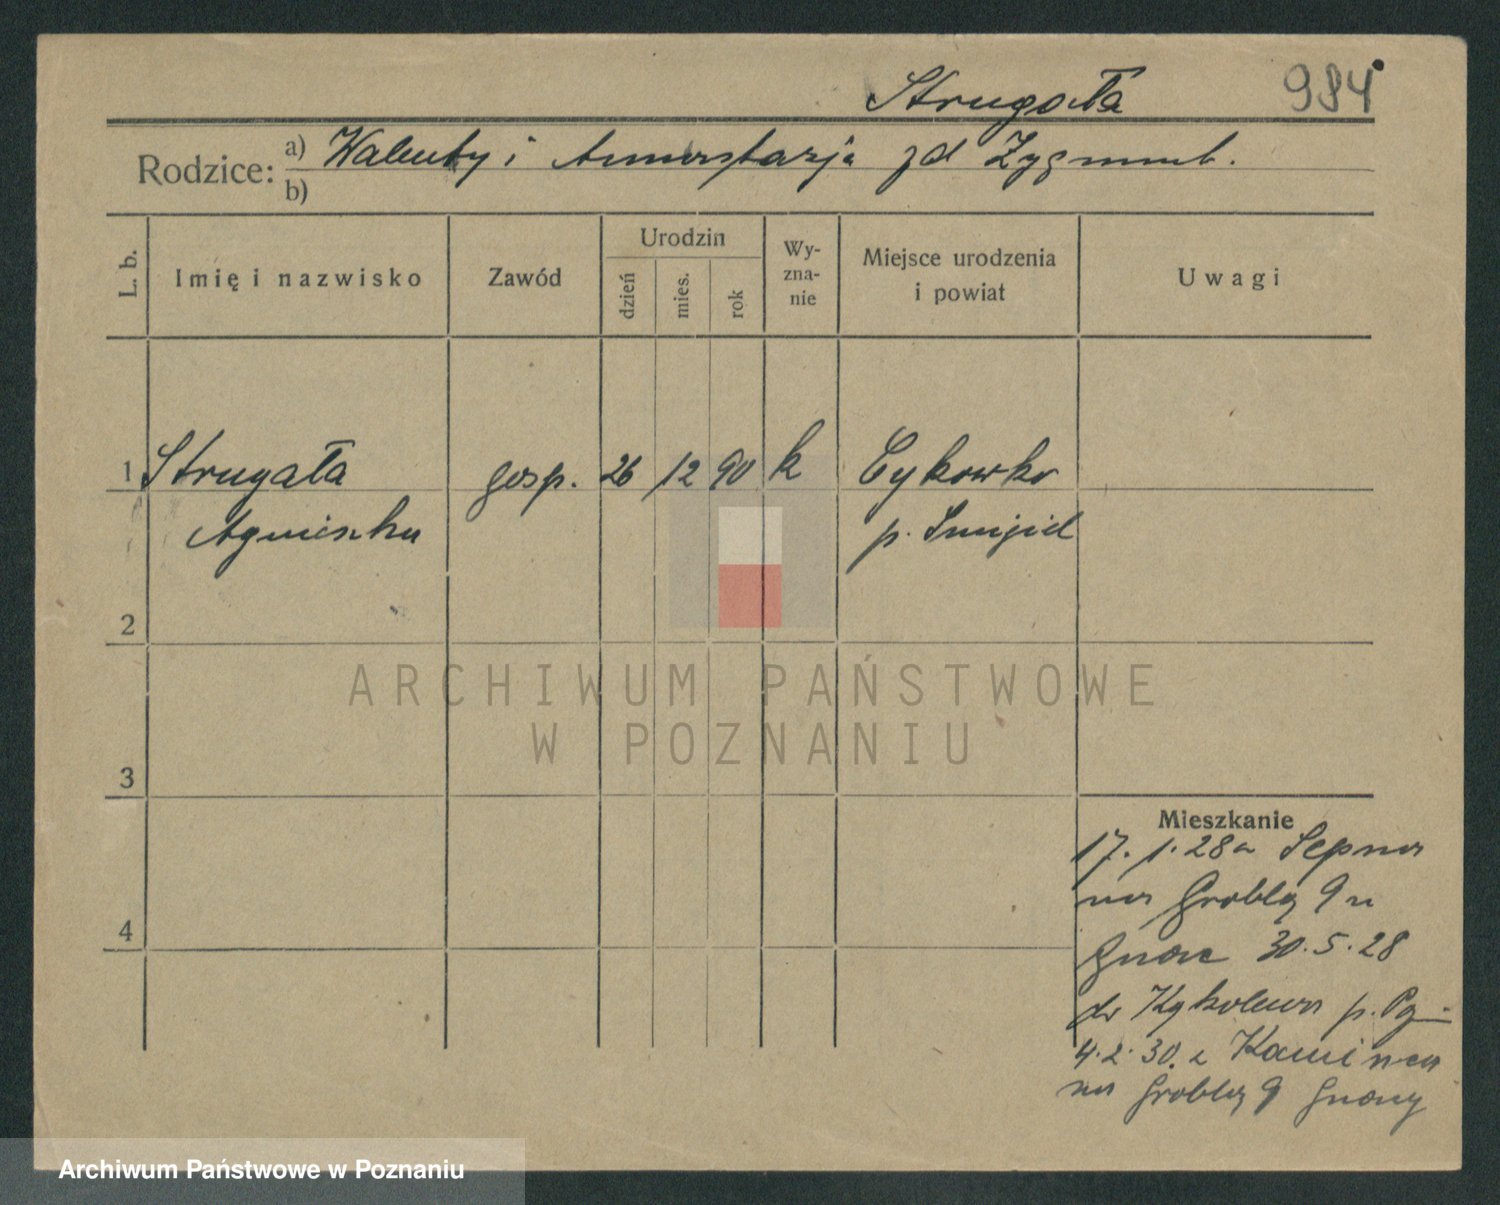 Strugała
984
Rodzice: a) Walenty i Anastazja zd Zygmunt.
b)
L. b.
Imię i nazwisko
Zawód
Urodzin
dzień
mies.
rok
Wy-
zna-
nie
Miejsce urodzenia
i powiat
Uwagi
1 Strugała gosp. 26 12 90 k Cykowko
Agnieszka p. Śmigiel
2
3
4
Mieszkanie
17. 1. 28 z Sepna
na Groblę 9 u
30. 5. 28
do Kąkolewa p.
4. 2. 30. z
na Groblę 9
ARCHIWUM PAŃSTWOWE
W POZNANIU
Archiwum Państwowe w Poznaniu